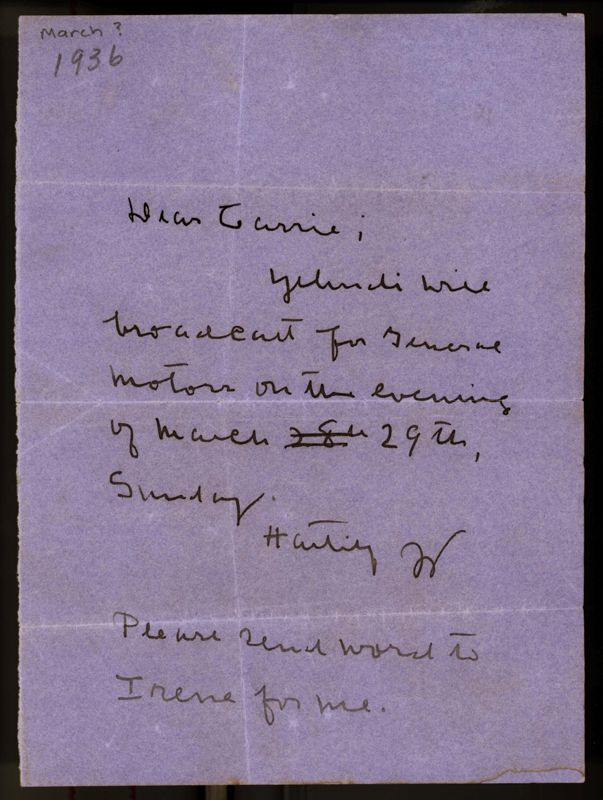 March ?
1936
Dear Carrie;
Yehudi will
broadcast for General
Motors on the evening
of March 28th 29th,
Sunday.
Hastily W
Please send word to
Irene for me.